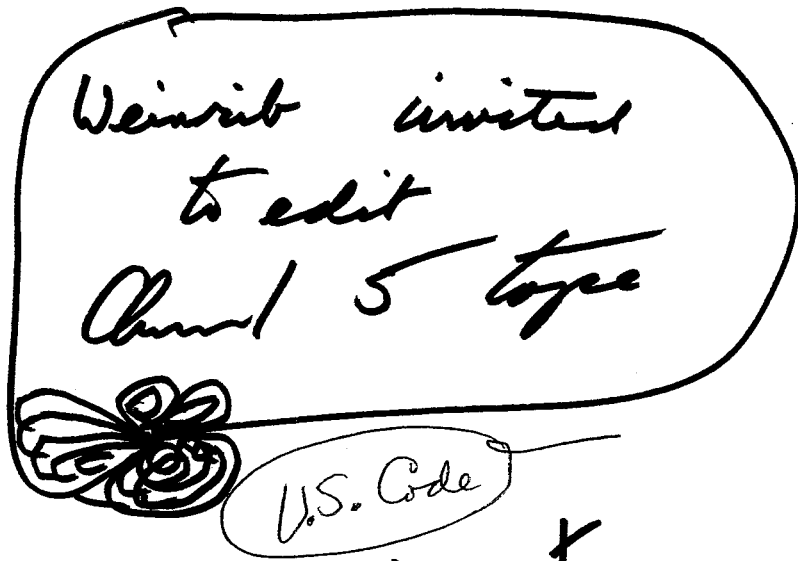 Weinrib invited
to edit
Channel 5 tape
U.S. Code